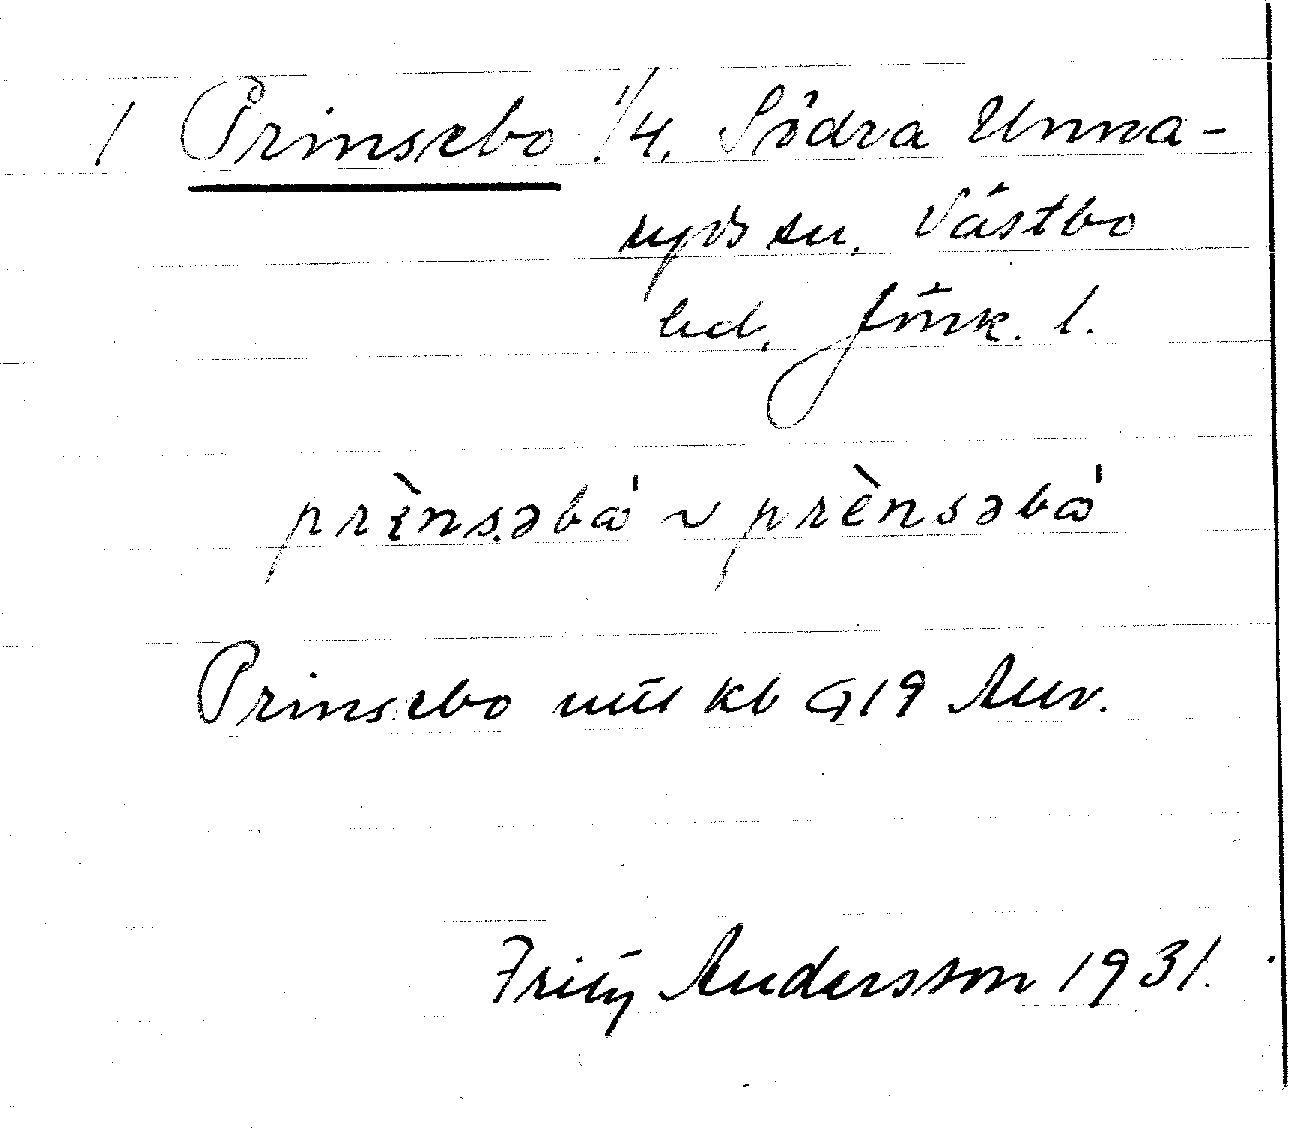 1 Prinsebo 1/4. Södra Unna-
ryds sn. Västbo
hd. Jönk. l.
prìnsəbå' ~ prènsəbå'
Prinsebo kb 1919
Fritz Andersson 1931.